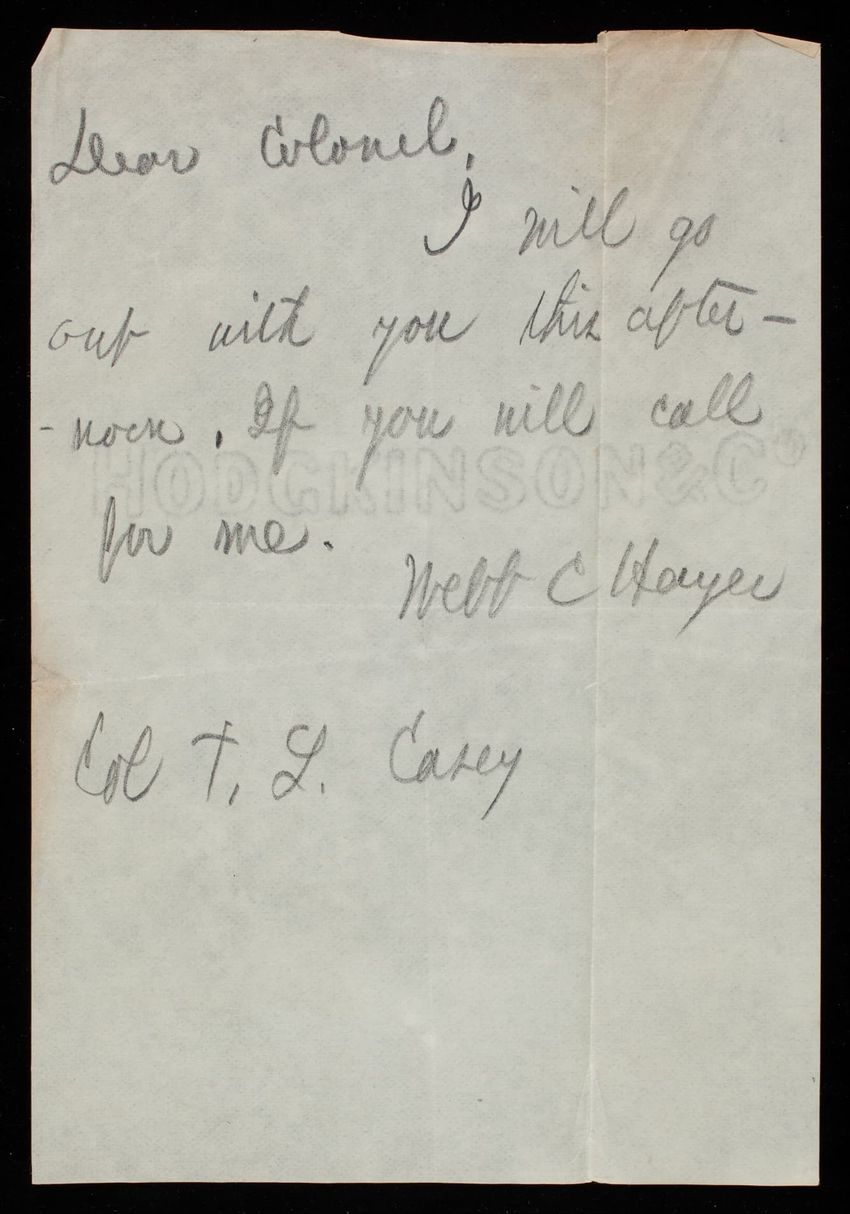 Dear Colonel,
I will go
out with you this after-
-noon. If you will call
HODGKINSON & Co
for me.
Webb C Hayes
Col T. L. Casey